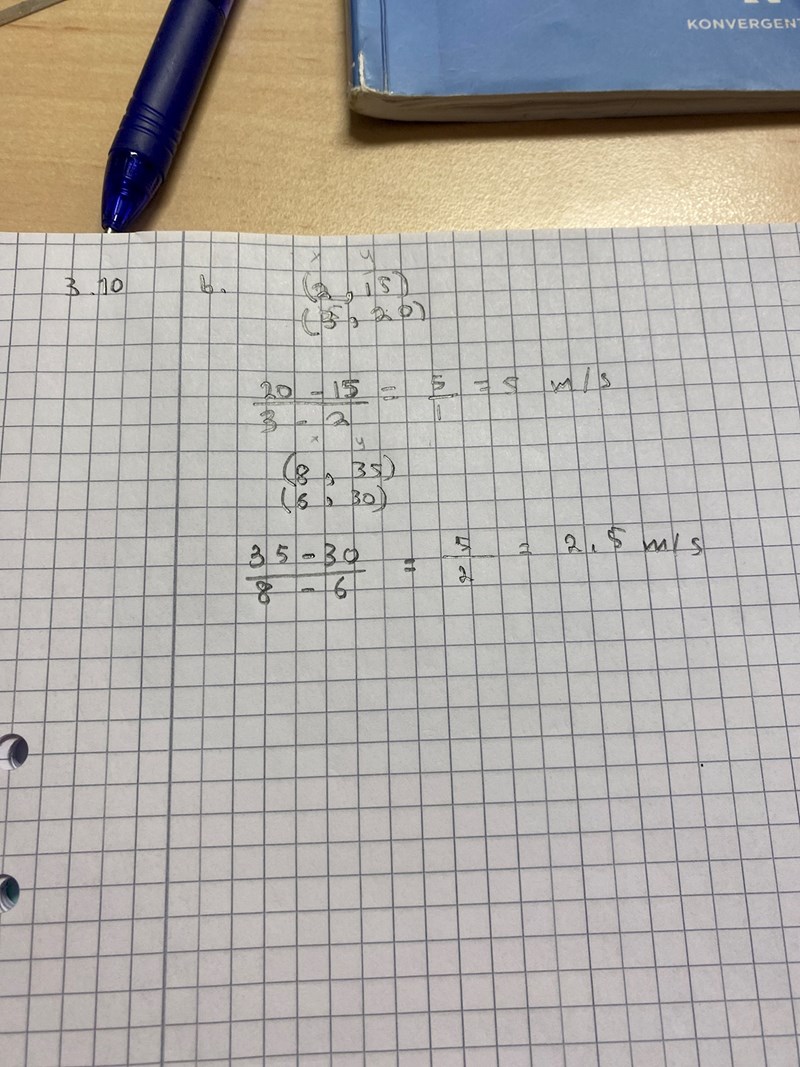 KONVERGENT
3.10 b. x y
(2, 15)
(3, 20)
20 - 15 / 3 - 2 = 5 / 1 = 5 m/s
x y
(8, 35)
(6, 30)
35 - 30 / 8 - 6 = 5 / 2 = 2.5 m/s